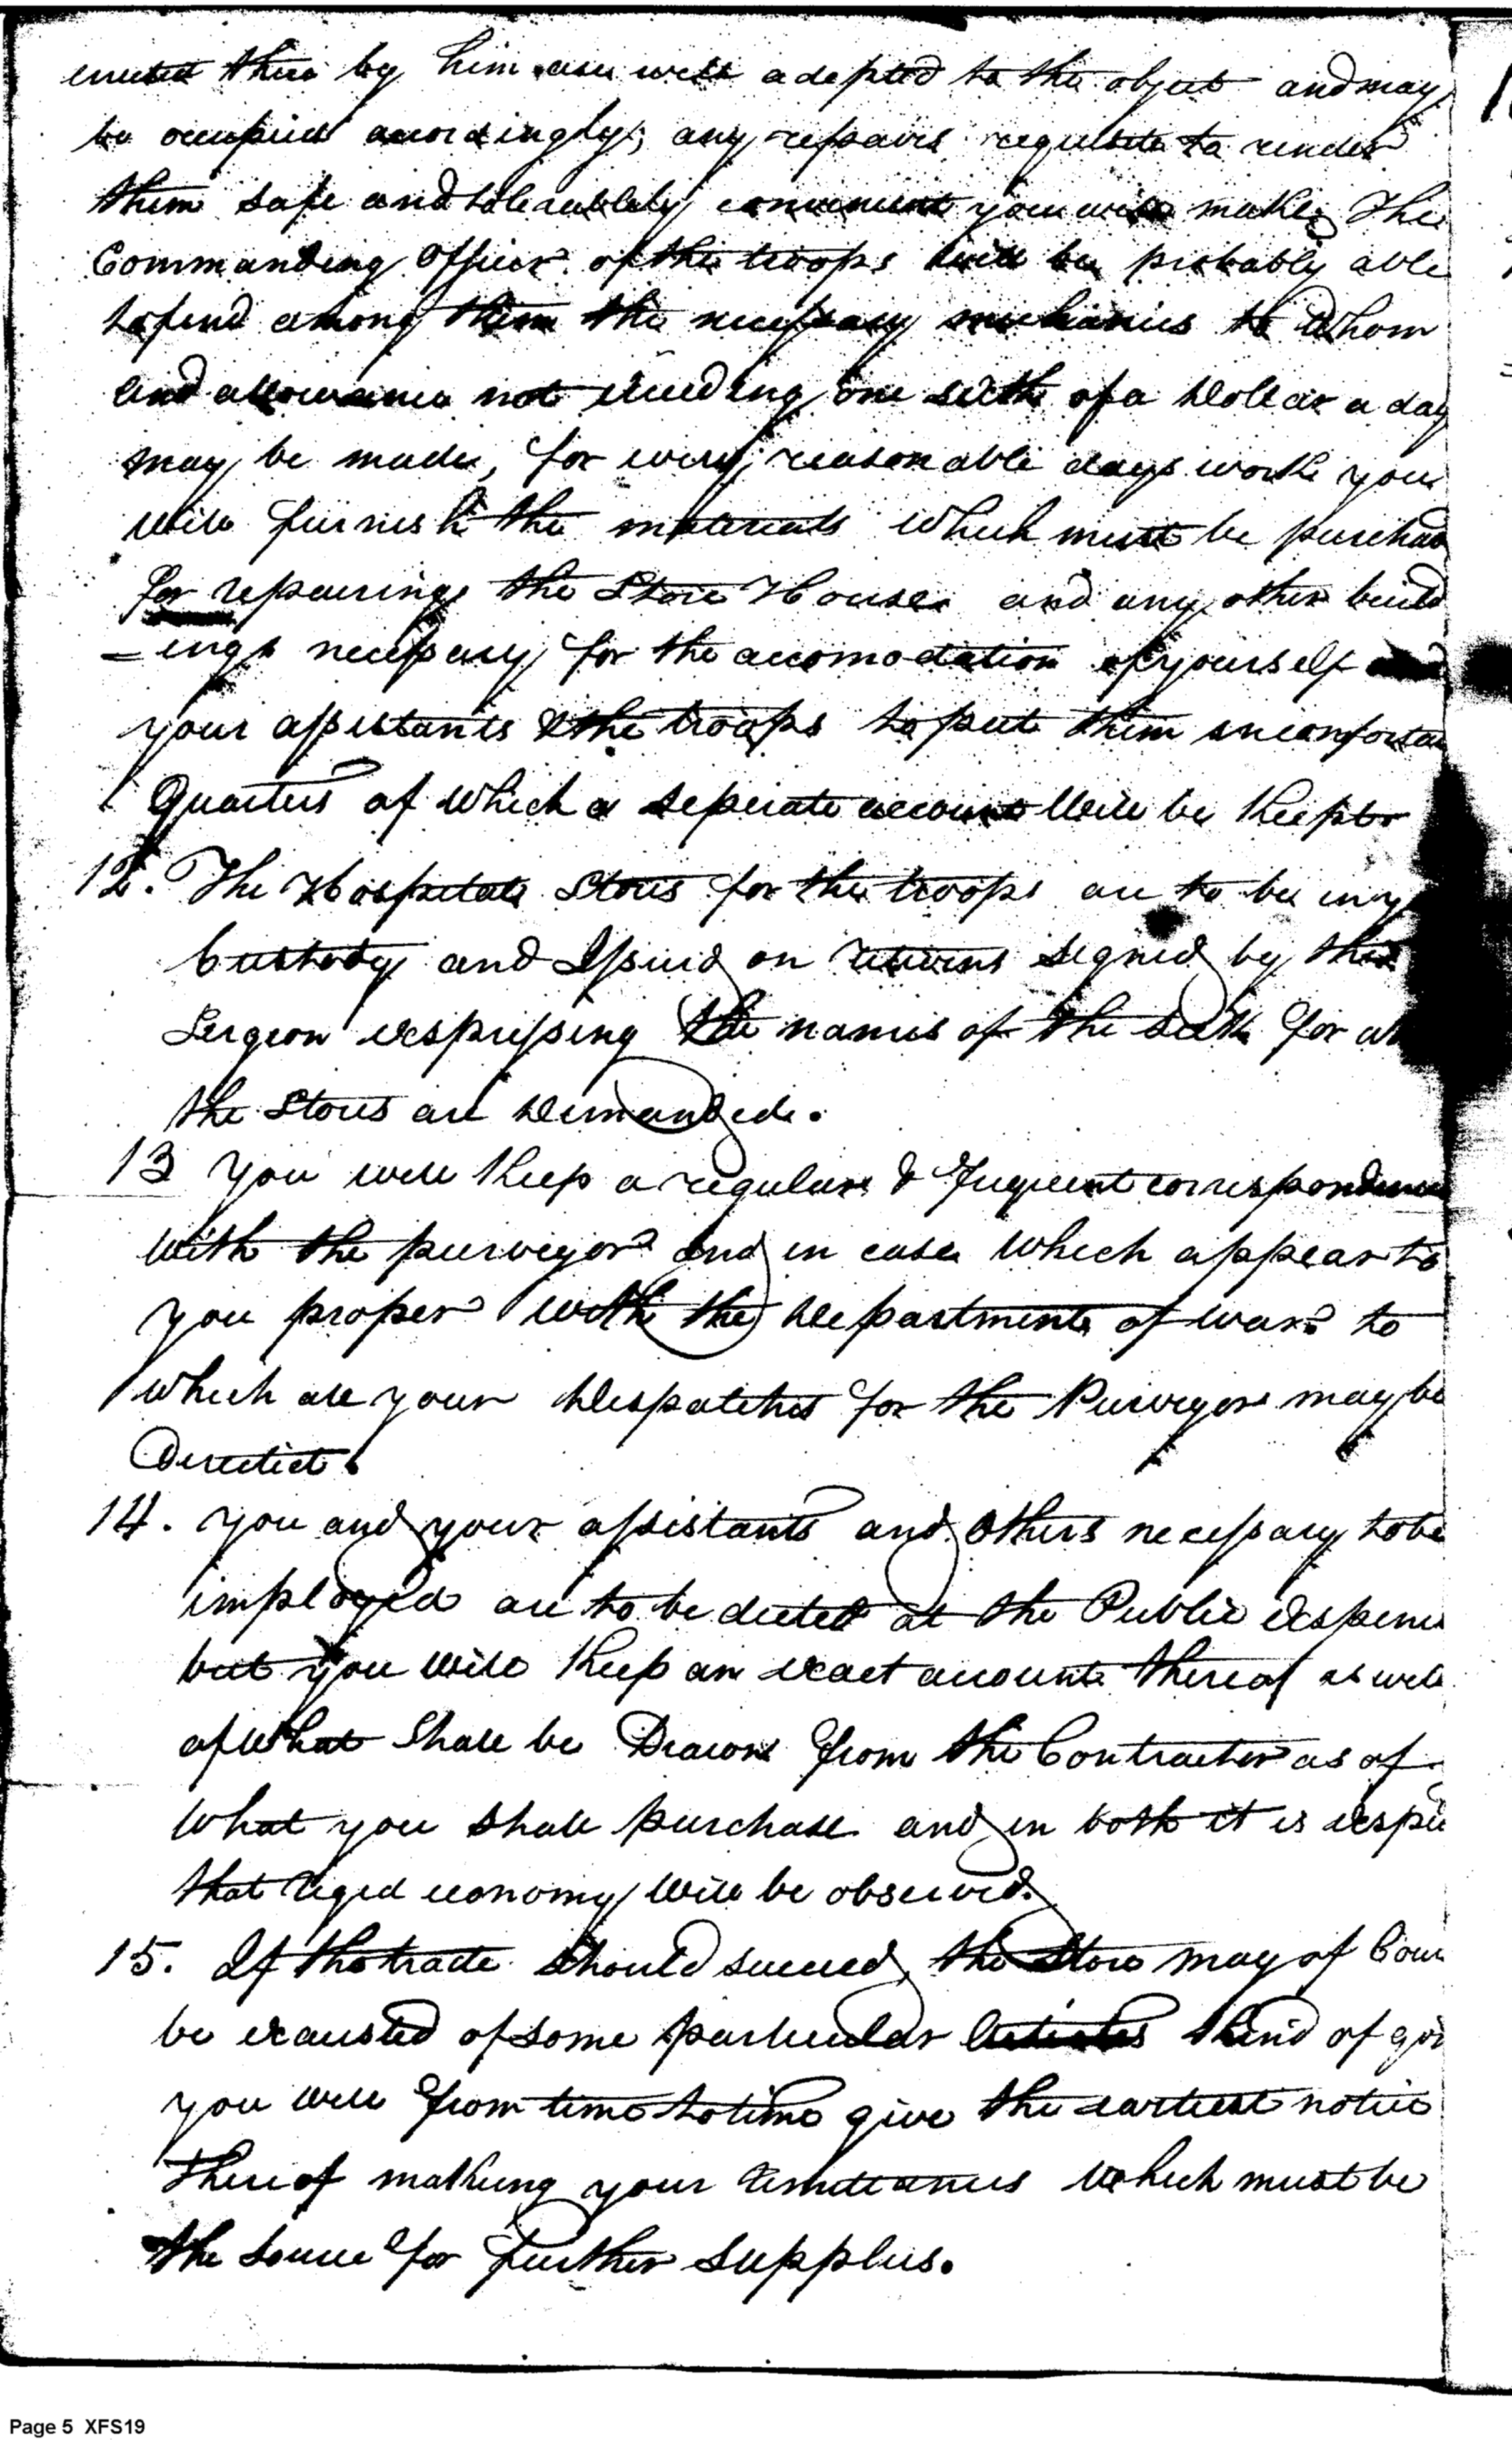 erected there by him are well adapted to the object and may
be occupied accordingly; any repairs requisite to render
them safe and tolerablely convenient you will make, The
Commanding Officer of the troops will be probably able
to find among them the necessary mechanics to Whom
and allowance not exceeding one sixth of a Dollar a day
may be made, for every reasonable days work you
will furnish the materials which must be purchas
for repairing the Store House and any other build
-ings necessary for the accomodation of yourself and
your assistants & the troops to put them in comforta
Quarters of which a seperate account Will be Kept
12. The Hospital Stores for the troops are to be in y
Custody and Issued on returns signed by the
Sergeon expressing the names of the sick for
the Stores are demanded.
13 You will Keep a regular & Frequent correspondence
With the purveyor and in case which appear to
you proper with the Department of war to
which all your Despatches for the Purveyor may be
Directed.
14. you and your assistants and Others necessary to be
imployed are to be dieted at the Public Expence
but you will Keep an exact account thereof as well
of What Shall be Drawn from the Contractor as of
What you shall purchase and in both it is expe
that riged economy Will be observed.
15. If the trade should succeed, the Store may of Cour
be exausted of some particular Articles Kind of
you will from time to time give the earliest notice
thereof making your remittances which must be
the source for further supplies.
Page 5 XFS19